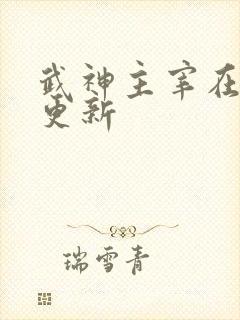 武神主宰在
更新
瑞雪青